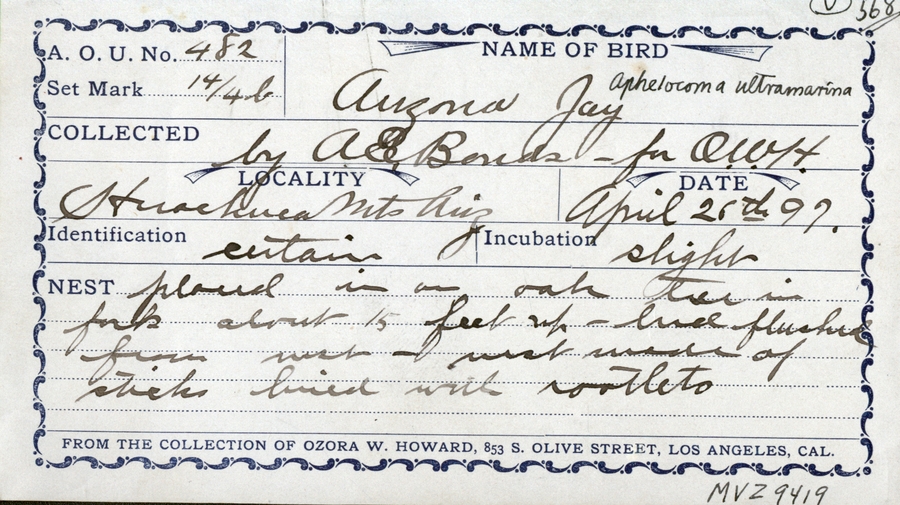 368
A. O. U. No. 482
NAME OF BIRD
Set Mark 14/4b
Arizona Jay Aphelocoma ultramarina
COLLECTED
by A.E. — for O.W.H.
LOCALITY
DATE
Huachuca Mts Ariz
April 25th 97.
Identification certain
Incubation slight
NEST placed in an oak tree in
fork about 15 feet up — bird flushed
from nest — nest made of
sticks lined with rootlets
FROM THE COLLECTION OF OZORA W. HOWARD, 853 S. OLIVE STREET, LOS ANGELES, CAL.
MVZ 9419